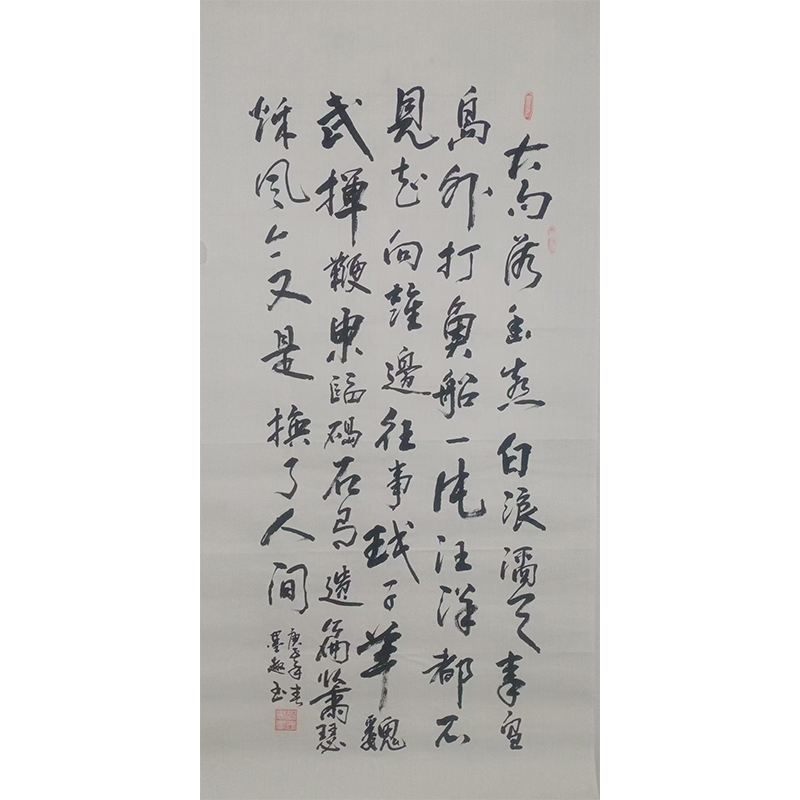 大雨落幽燕白浪滔天秦皇
島外打魚船一片汪洋都不
見知向誰邊往事越千年魏
武揮鞭東臨碣石有遺篇蕭瑟
秋風今又是換了人間
庚子年春
墨趣书